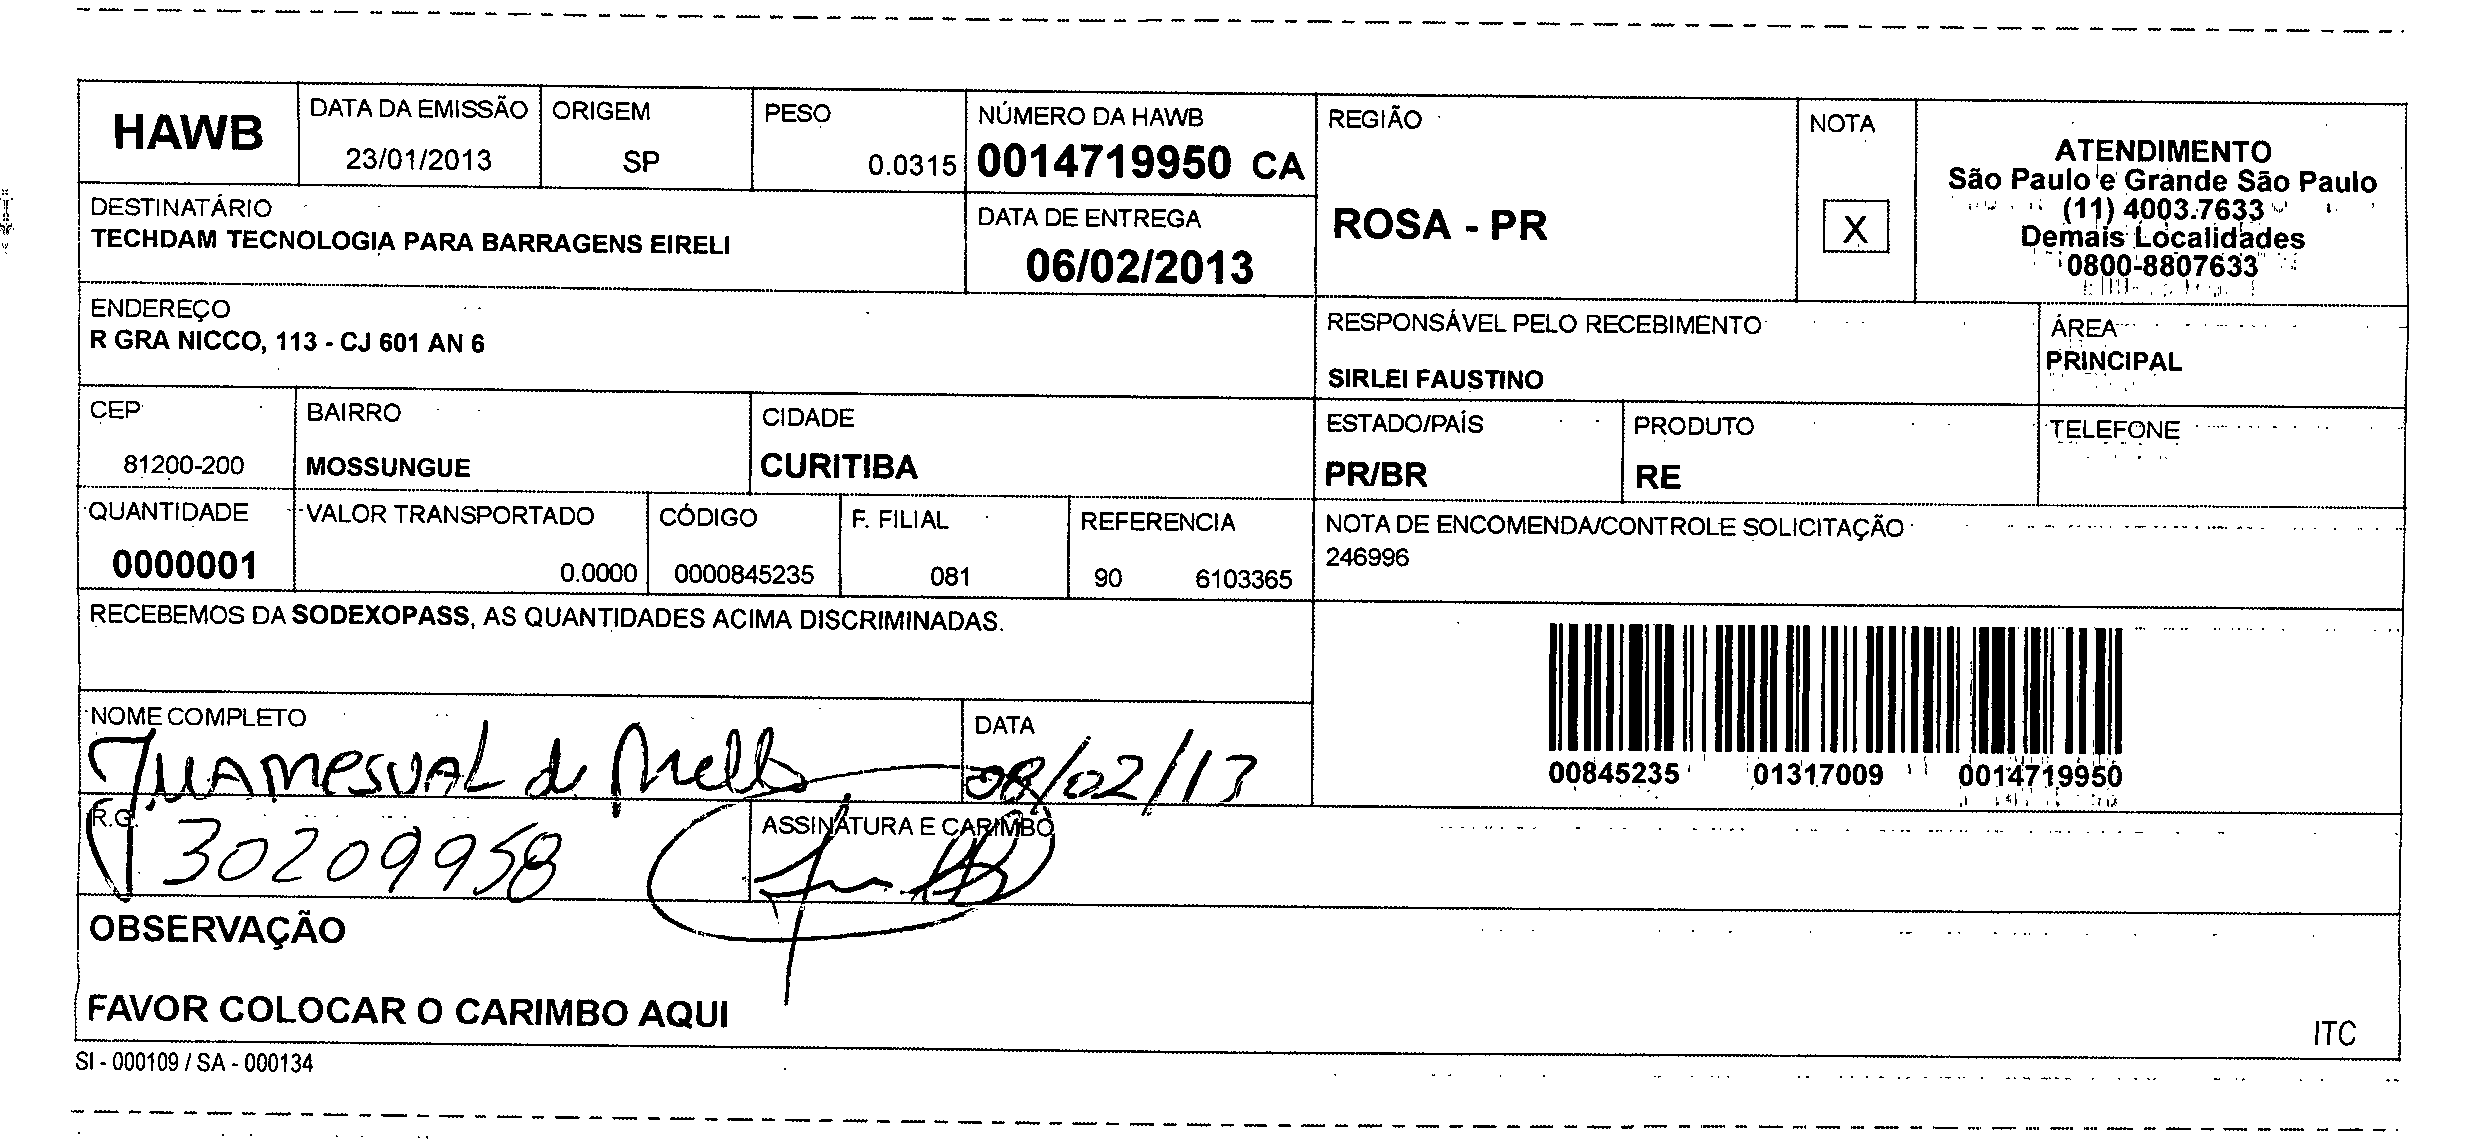 HAWB
DATA DA EMISSÃO
23/01/2013
ORIGEM
SP
PESO
0.0315
NÚMERO DA HAWB
0014719950 CA
REGIÃO
ROSA - PR
NOTA
X
ATENDIMENTO
São Paulo e Grande São Paulo
(11) 4003.7633
Demais Localidades
0800-8807633
DESTINATÁRIO
TECHDAM TECNOLOGIA PARA BARRAGENS EIRELI
DATA DE ENTREGA
06/02/2013
ENDEREÇO
R GRA NICCO, 113 - CJ 601 AN 6
RESPONSÁVEL PELO RECEBIMENTO
SIRLEI FAUSTINO
ÁREA
PRINCIPAL
CEP
81200-200
BAIRRO
MOSSUNGUE
CIDADE
CURITIBA
ESTADO/PAÍS
PR/BR
PRODUTO
RE
TELEFONE
QUANTIDADE
0000001
VALOR TRANSPORTADO
0.0000
CÓDIGO
0000845235
F. FILIAL
081
REFERENCIA
90 6103365
NOTA DE ENCOMENDA/CONTROLE SOLICITAÇÃO
246996
RECEBEMOS DA SODEXOPASS, AS QUANTIDADES ACIMA DISCRIMINADAS.
00845235 01317009 0014719950
NOME COMPLETO
de Mello
DATA
08/02/13
R.G.
30209958
ASSINATURA E CARIMBO
OBSERVAÇÃO
FAVOR COLOCAR O CARIMBO AQUI
ITC
SI - 000109 / SA - 000134